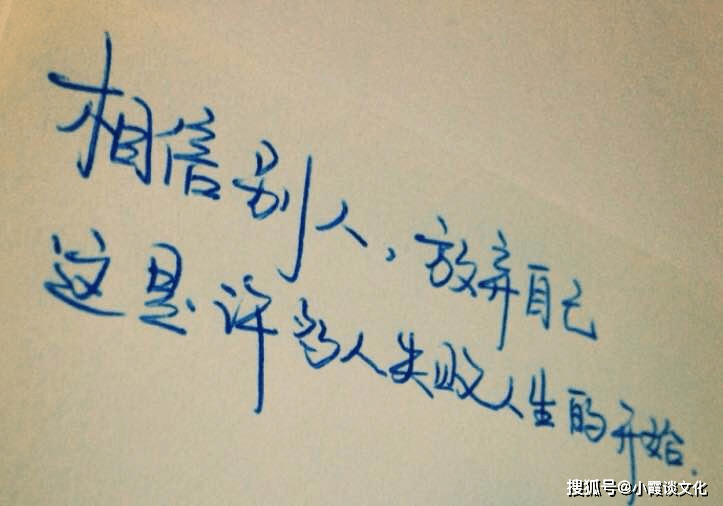 相信别人,放弃自己
这是许多人失败人生的开始.
搜狐号@小霞谈文化